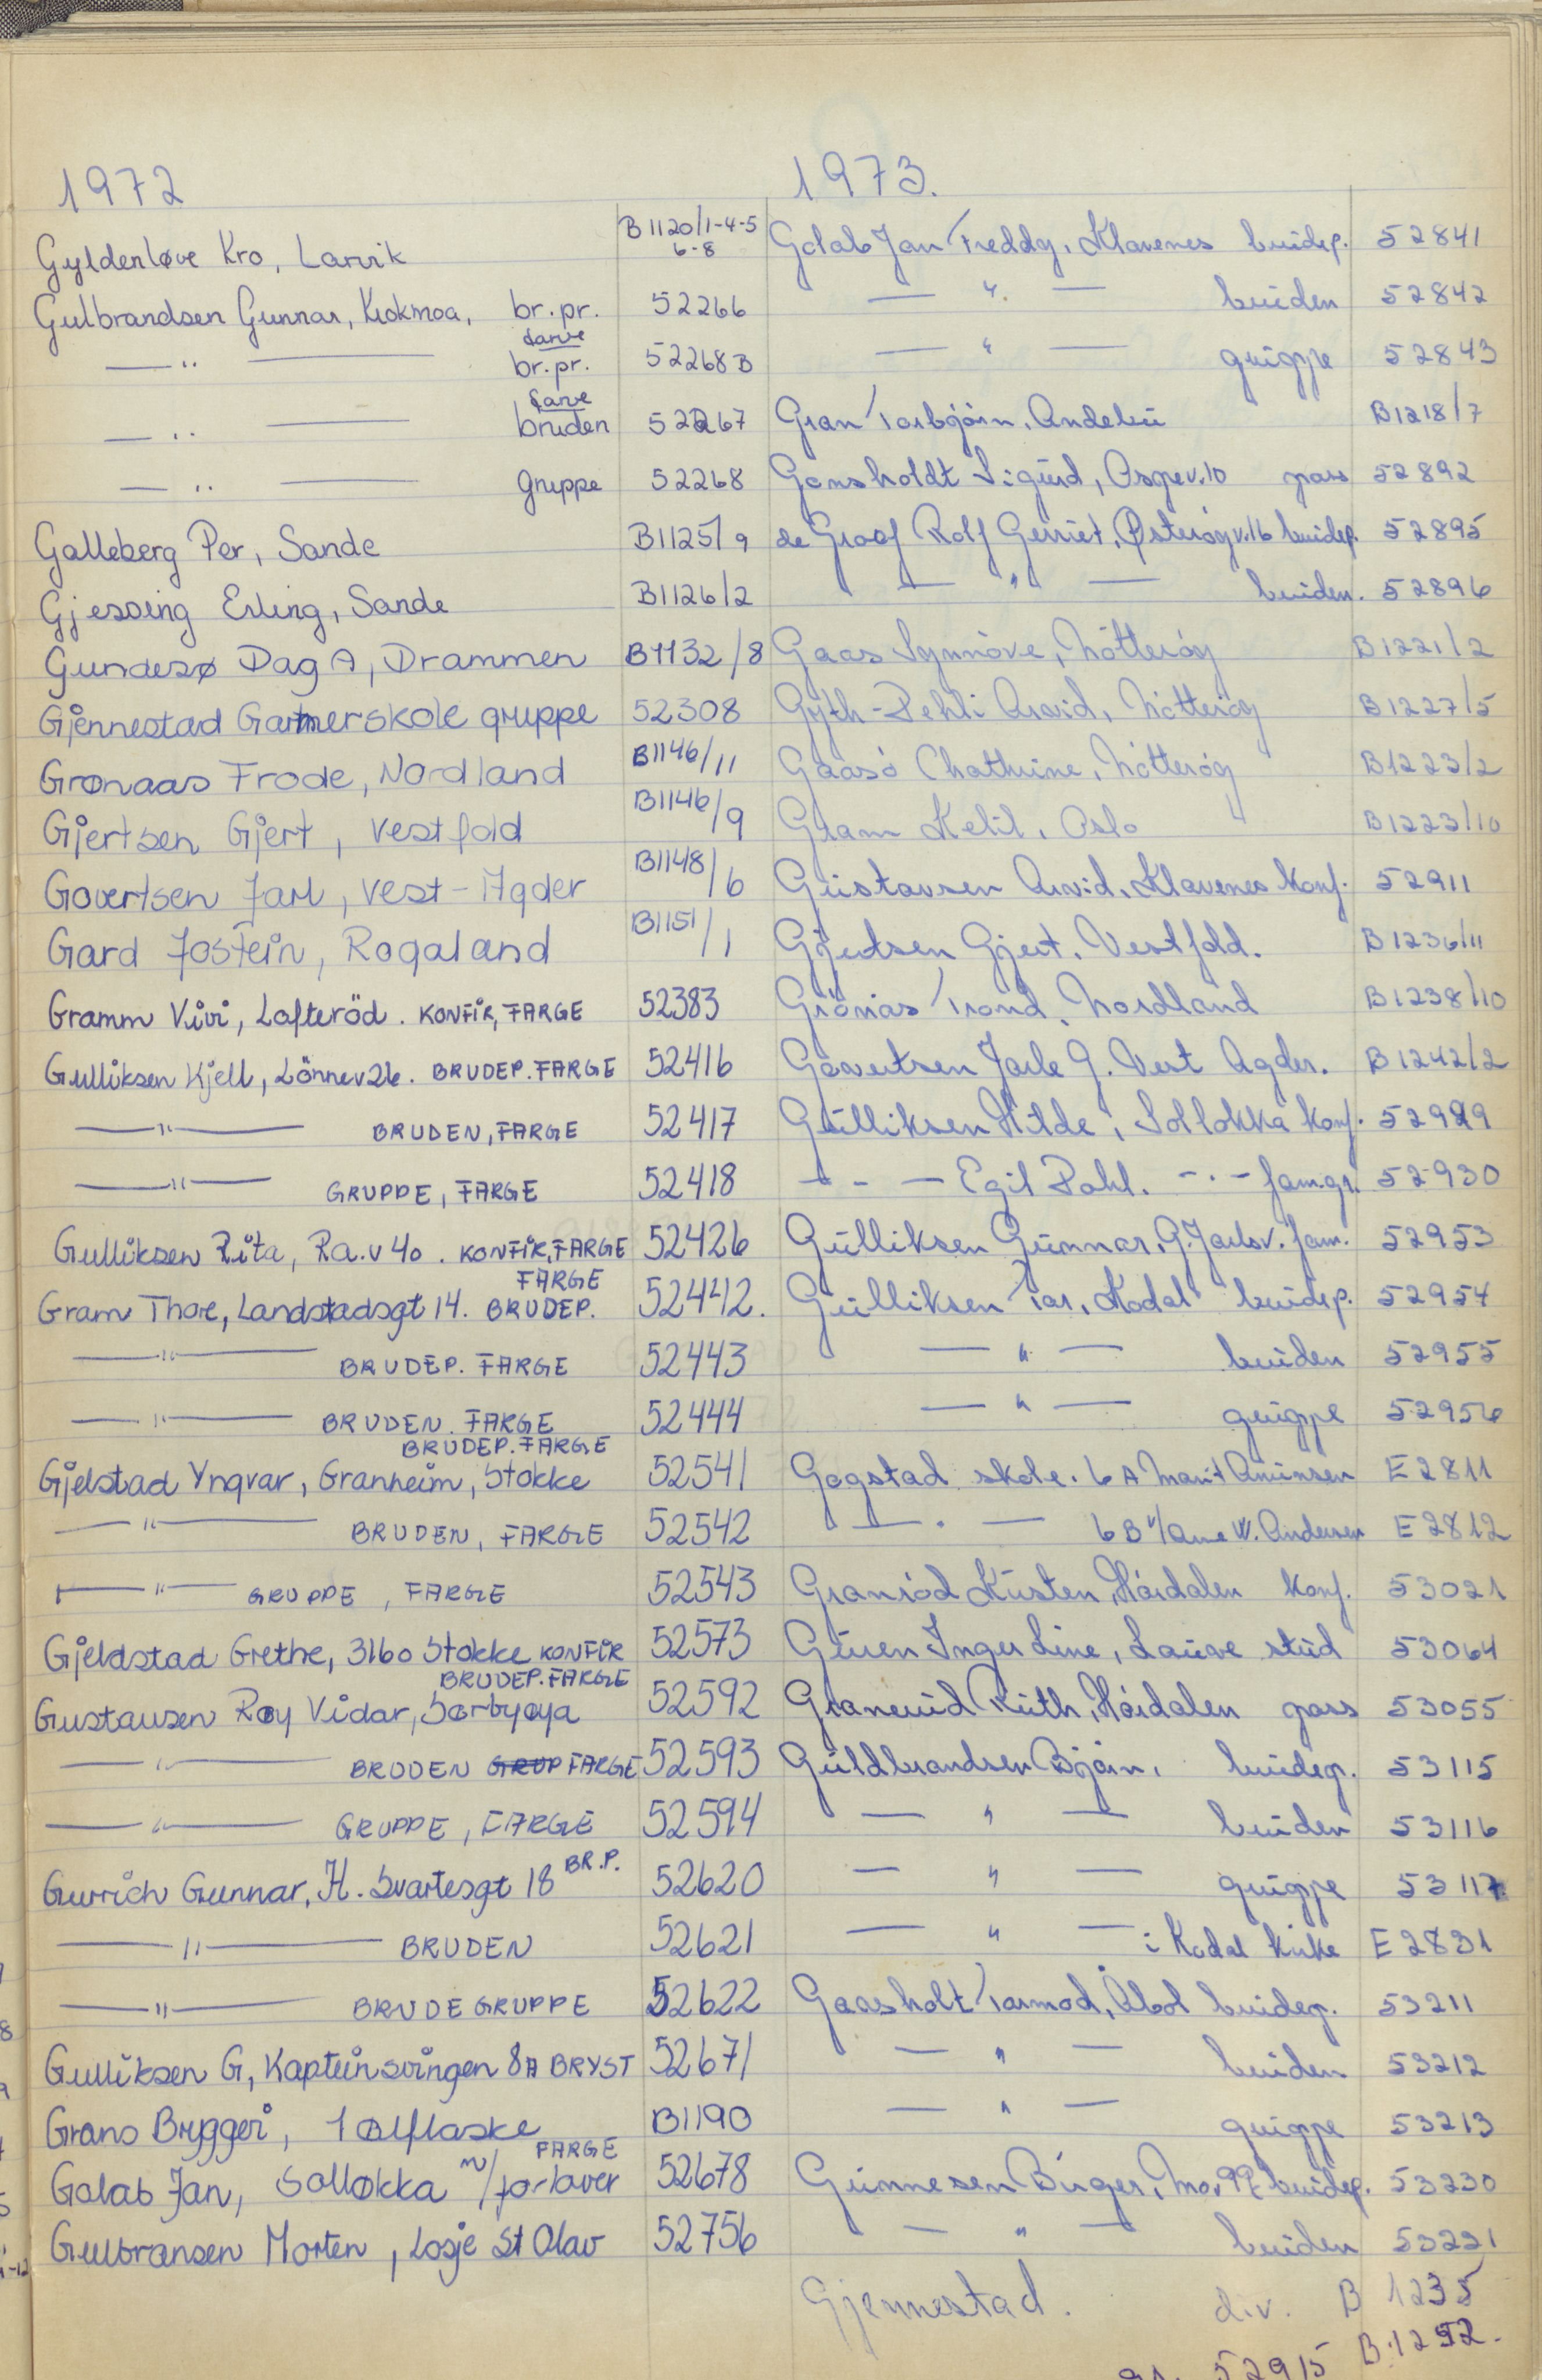 1972
Gyldenløve Kro, Larvik B1120/1-4-5 6-8
Gulbrandsen Gunnar, Krokmoa, br.pr. 52266
— " — farve br.pr. 52268B
— " — farve bruden 52267
— " — gruppe 52268
Galleberg Per, Sande B1125/9
Gjessing Erling, Sande B1126/2
Gundesø Dag A, Drammen B1132/8
Gjennestad Gartnerskole gruppe 52308
Grønaas Frode, Nordland B1146/11
Gjertsen Gjert, Vestfold B1146/9
Govertsen Jarl, Vest-Agder B1148/6
Gard Jostein, Rogaland B1151/1
Gramm Vivi, Lofteröd. KONFIR, FARGE 52383
Gulliksen Kjell, Lönnev 26. BRUDEP. FARGE 52416
— " — BRUDEN, FARGE 52417
— " — GRUPPE, FARGE 52418
Gulliksen Rita, Ra.v 40. KONFIR, FARGE 52426
Gram Thore, Landstadsgt 14. FARGE BRUDEP. 52442.
— " — BRUDEP. FARGE 52443
— " — BRUDEN. FARGE 52444
Gjelstad Yngvar, Granheim, Stokke BRUDEP. FARGE 52541
— " — BRUDEN, FARGE 52542
— " — GRUPPE, FARGE 52543
Gjeldstad Grethe, 3160 Stokke KONFIR 52573
Gustausen Roy Vidar, Sørbyøya BRUDEP. FARGE 52592
— " — BRUDEN GRUP FARGE 52593
— " — GRUPPE, FARGE 52594
Gurrich Gunnar, H. Svartesgt 18 BR.P. 52620
— " — BRUDEN 52621
— " — BRUDEGRUPPE 52622
Gulliksen G, Kapteinsvingen 8A BRYST 52671
Grans Bryggeri, 1 ølflaske B1190
Golab Jan, Solløkka m/forlover FARGE 52678
Gulbransen Morten, Losje St Olav 52756
1973.
Golab Jan Freddy, Klavenes brudep. 52841
— " — bruden 52842
— " — gruppe 52843
Gran Torbjørn, Andebu B1218/7
Gonsholdt Sigurd, Ospev. 10 pass 52892
de Graaf Rolf Gerriet, Østerøyv. 16 brudep. 52895
— " — bruden. 52896
Gaas Synnöve, Nötteröy B1221/2
Gyth-Dehli Arvid, Nötteröy B1227/5
Gaasö Chathrine, Nötteröy B1223/2
Gram Ketil, Oslo B1223/10
Gustavsen Arvid, Klavenes Konf. 52911
Gjertsen Gjert. Vestfold. B1236/11
Grönås Trond, Nordland B1238/10
Govertsen Jarle G. Vest Agder. B1242/2
Gulliksen Hilde, Solløkka Konf. 52929
— " — Egil Dahl. — " — fam.gr. 52930
Gulliksen Gunnar, G. Jarlsv. fam. 52953
Gulliksen Tor, Kodal brudep. 52954
— " — bruden 52955
— " — gruppe 52956
Gogstad skole. 6A Marit Amunsen E2811
— " — 6B v/Arne W. Andersen E2812
Granröd Kirsten, Høidalen Konf. 53021
Guren Inger Line, Lauve stud 53064
Granerud Ruth, Høidalen pass 53055
Guldbrandsen Bjørn, brudep. 53115
— " — bruden 53116
— " — gruppe 53117
— " — i Kodal kirke E2831
Gaasholt Tormod, Åbol brudep. 53211
— " — bruden 53212
— " — gruppe 53213
Gunnesen Birger, Mov 99 brudep. 53230
— " — bruden 53231
Gjennestad. div. B 1235
gr. 52915 B.1252.